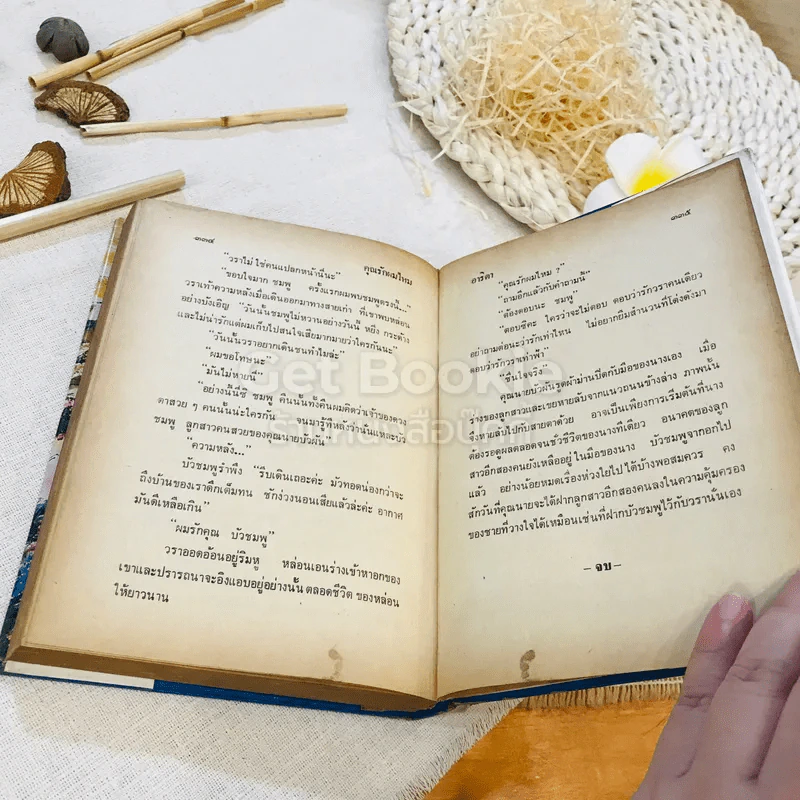 ๓๓๔
คุณรักผมไหม
"วราไม่ใช่คนแปลกหน้านี่นะ"
"ขอบใจมาก ชมพู ครั้งแรกผมพบชมพูตรงนี้..."
วราเท้าความหลังเมื่อเดินออกมาทางสายเก่า ที่เขาพบหล่อน
อย่างบังเอิญ "วันนั้นชมพูไม่หวานอย่างวันนี้ หยิ่ง กระด้าง
และไม่น่ารักแต่ผมเก็บไปสนใจเสียมากมายว่าใครกันนะ"
"วันนั้นวราอยากเดินชนทำไมล่ะ"
"ผมขอโทษนะ"
"มันไม่หายนี่"
"อย่างนี้นี่ซิ ชมพู คืนนั้นทั้งคืนผมคิดว่าเจ้าของดวง
ตาสวย ๆ คนนั้นน่ะใครกัน จนมารู้ทีหลังว่านั่นแหละบัว
ชมพู ลูกสาวคนสวยของคุณนายบัวผัน"
"ความหลัง..."
บัวชมพูรำพึง "รีบเดินเถอะค่ะ มัวทอดน่องกว่าจะ
ถึงบ้านของเราดึกเต็มทน ชักง่วงนอนเสียแล้วล่ะค่ะ อากาศ
มันดีเหลือเกิน"
"ผมรักคุณ บัวชมพู"
วราออดอ้อนอยู่ริมหู หล่อนเอนร่างเข้าหาอกของ
เขาและปรารถนาจะอิงแอบอยู่อย่างนั้น ตลอดชีวิต ของหล่อน
ให้ยาวนาน
อาริตา
๓๓๕
"คุณรักผมไหม ?"
"ถามอีกแล้วกับคำถามนี้"
"ต้องตอบนะ ชมพู"
"ตอบซีคะ ใครว่าจะไม่ตอบ ตอบว่ารักวราคนเดียว
อย่าถามต่อนะว่ารักเท่าไหน ไม่อยากยืมสำนวนที่โด่งดังมา
ตอบว่ารักวราเท่าฟ้า"
"ชื่นใจจริง"
คุณนายบัวผันรูดผ้าม่านปิดกับมือของนางเอง เมื่อ
ร่างของลูกสาวและเขยหายลับจากแนวถนนข้างล่าง ภาพนั้น
จึงหายลับไปกับสายตาด้วย อาจเป็นเพียงการเริ่มต้นที่นาง
ต้องรอดูผลตลอดจนชั่วชีวิตของนางทีเดียว อนาคตของลูก
สาวอีกสองคนยังเหลืออยู่ในมือของนาง บัวชมพูจากอกไป
แล้ว อย่างน้อยหมดเรื่องห่วงใยไปได้บ้างพอสมควร คง
สักวันที่คุณนายจะได้ฝากลูกสาวอีกสองคนลงในความคุ้มครอง
ของชายที่วางใจได้เหมือนเช่นที่ฝากบัวชมพูไว้กับวรานั่นเอง
– จบ –
Get Bookie
ร้านหนังสือบุ๊คกี้